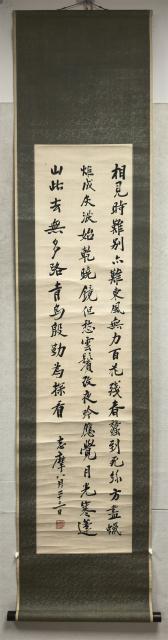 相見時難別亦難東風無力百花殘春蠶到死絲方盡蠟
炬成灰淚始乾曉鏡但愁雲鬢改夜吟應覺月光寒蓬
山此去無多路青鳥殷勤為探看
志摩 八月廿三日